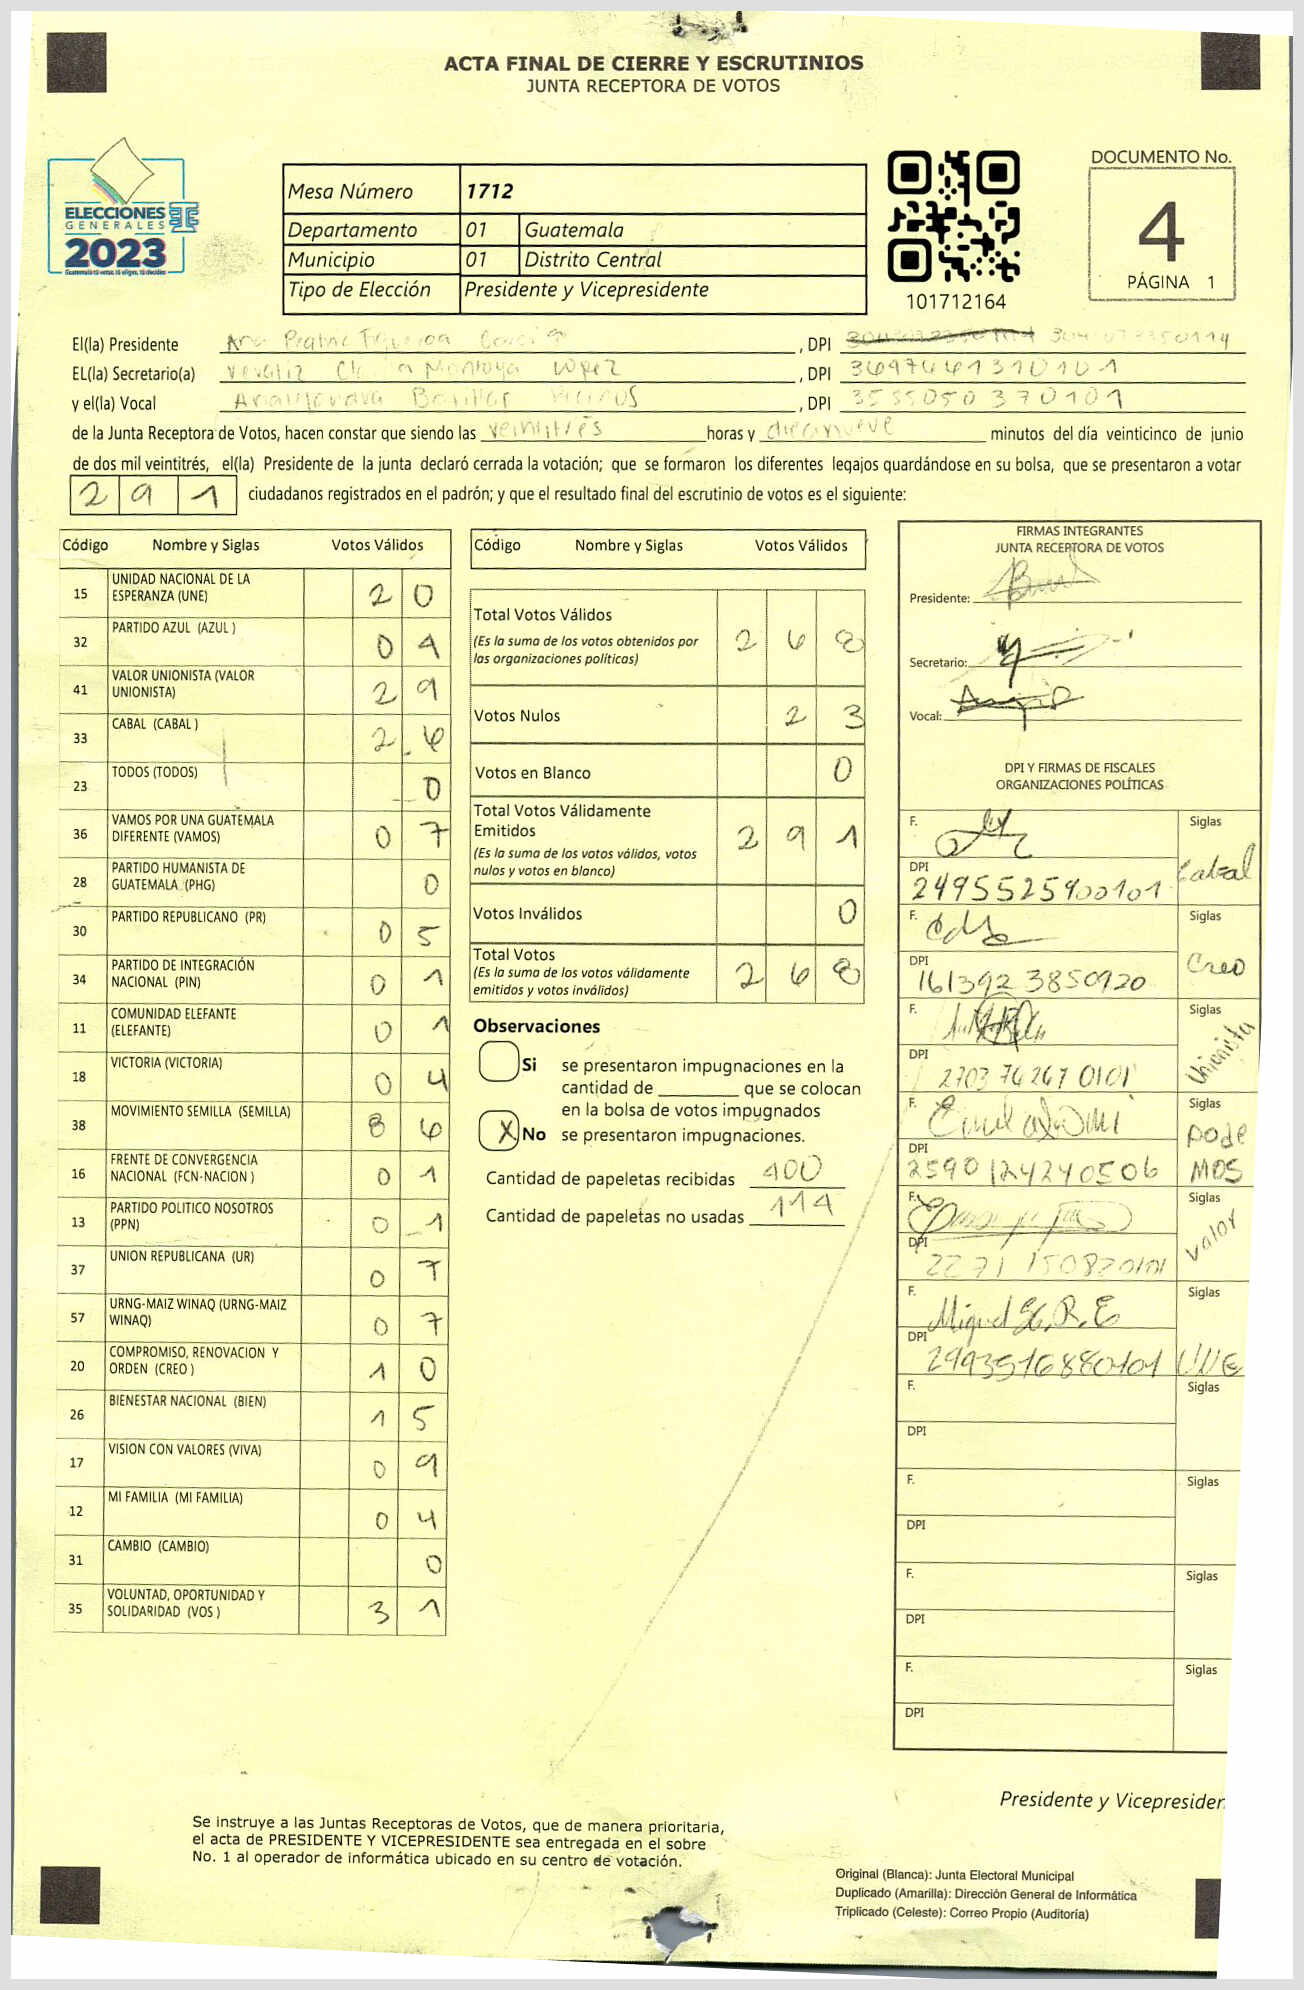 ACTA FINAL DE CIERRE Y ESCRUTINIOS
JUNTA RECEPTORA DE VOTOS
ELECCIONES
GENERALES
2023
Mesa Número 1712
Departamento 01 Guatemala
Municipio 01 Distrito Central
Tipo de Elección Presidente y Vicepresidente
101712164
DOCUMENTO No.
4
PÁGINA 1
El(la) Presidente Ana , DPI
EL(la) Secretario(a) Montoya Lopez , DPI 3697461310101
y el(la) Vocal , DPI 3555050370101
de la Junta Receptora de Votos, hacen constar que siendo las veintitrés horas y diecinueve minutos del día veinticinco de junio
de dos mil veintitrés, el(la) Presidente de la junta declaró cerrada la votación; que se formaron los diferentes legajos quardándose en su bolsa, que se presentaron a votar
291 ciudadanos registrados en el padrón; y que el resultado final del escrutinio de votos es el siguiente:
Código Nombre y Siglas Votos Válidos
15 UNIDAD NACIONAL DE LA ESPERANZA (UNE) 20
32 PARTIDO AZUL (AZUL ) 04
41 VALOR UNIONISTA (VALOR UNIONISTA) 29
33 CABAL (CABAL ) 26
23 TODOS (TODOS) 0
36 VAMOS POR UNA GUATEMALA DIFERENTE (VAMOS) 07
28 PARTIDO HUMANISTA DE GUATEMALA (PHG) 0
30 PARTIDO REPUBLICANO (PR) 05
34 PARTIDO DE INTEGRACIÓN NACIONAL (PIN) 01
11 COMUNIDAD ELEFANTE (ELEFANTE) 01
18 VICTORIA (VICTORIA) 04
38 MOVIMIENTO SEMILLA (SEMILLA) 86
16 FRENTE DE CONVERGENCIA NACIONAL (FCN-NACION ) 01
13 PARTIDO POLITICO NOSOTROS (PPN) 01
37 UNION REPUBLICANA (UR) 07
57 URNG-MAIZ WINAQ (URNG-MAIZ WINAQ) 07
20 COMPROMISO, RENOVACION Y ORDEN (CREO ) 10
26 BIENESTAR NACIONAL (BIEN) 15
17 VISION CON VALORES (VIVA) 09
12 MI FAMILIA (MI FAMILIA) 04
31 CAMBIO (CAMBIO) 0
35 VOLUNTAD, OPORTUNIDAD Y SOLIDARIDAD (VOS ) 31
Código Nombre y Siglas Votos Válidos
Total Votos Válidos 268
(Es la suma de los votos obtenidos por
las organizaciones políticas)
Votos Nulos 23
Votos en Blanco 0
Total Votos Válidamente
Emitidos 291
(Es la suma de los votos válidos, votos
nulos y votos en blanco)
Votos Inválidos 0
Total Votos 268
(Es la suma de los votos válidamente
emitidos y votos inválidos)
Observaciones
Si se presentaron impugnaciones en la
cantidad de ________ que se colocan
en la bolsa de votos impugnados
X No se presentaron impugnaciones.
Cantidad de papeletas recibidas 400
Cantidad de papeletas no usadas 114
FIRMAS INTEGRANTES
JUNTA RECEPTORA DE VOTOS
Presidente:
Secretario:
Vocal:
DPI Y FIRMAS DE FISCALES
ORGANIZACIONES POLÍTICAS
F. Siglas
DPI 2495525900101 Cabal
F. Siglas
DPI 161392 3850920 Creo
F. Siglas
DPI 2703 76267 0101 Unionista
F. Siglas
DPI 2590124240506 PODEMOS
F. Siglas
DPI 2271 150820101 Valor
F. Miguel Siglas
DPI 2993516880101 UNE
F. Siglas
DPI
F. Siglas
DPI
F. Siglas
DPI
F. Siglas
DPI
Presidente y Vicepresiden
Se instruye a las Juntas Receptoras de Votos, que de manera prioritaria,
el acta de PRESIDENTE Y VICEPRESIDENTE sea entregada en el sobre
No. 1 al operador de informática ubicado en su centro de votación.
Original (Blanca): Junta Electoral Municipal
Duplicado (Amarilla): Dirección General de Informática
Triplicado (Celeste): Correo Propio (Auditoría)